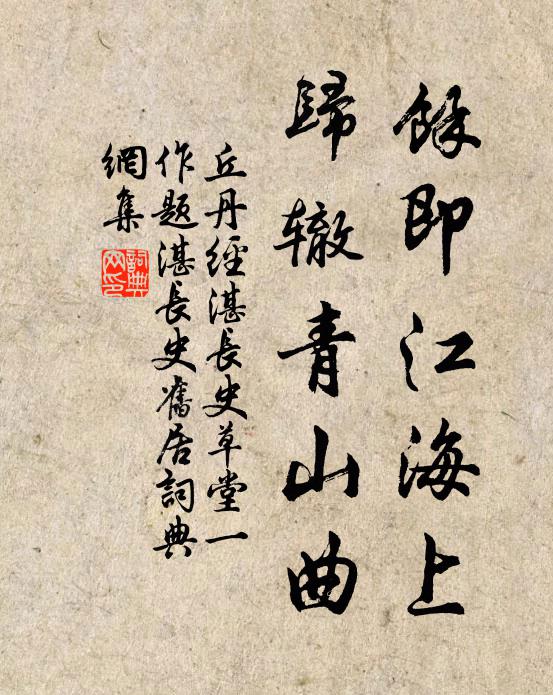 餘即江海上
歸辙青山曲
丘丹經湛長史草堂一
作題湛長史舊居詞典
網集
詞典網印